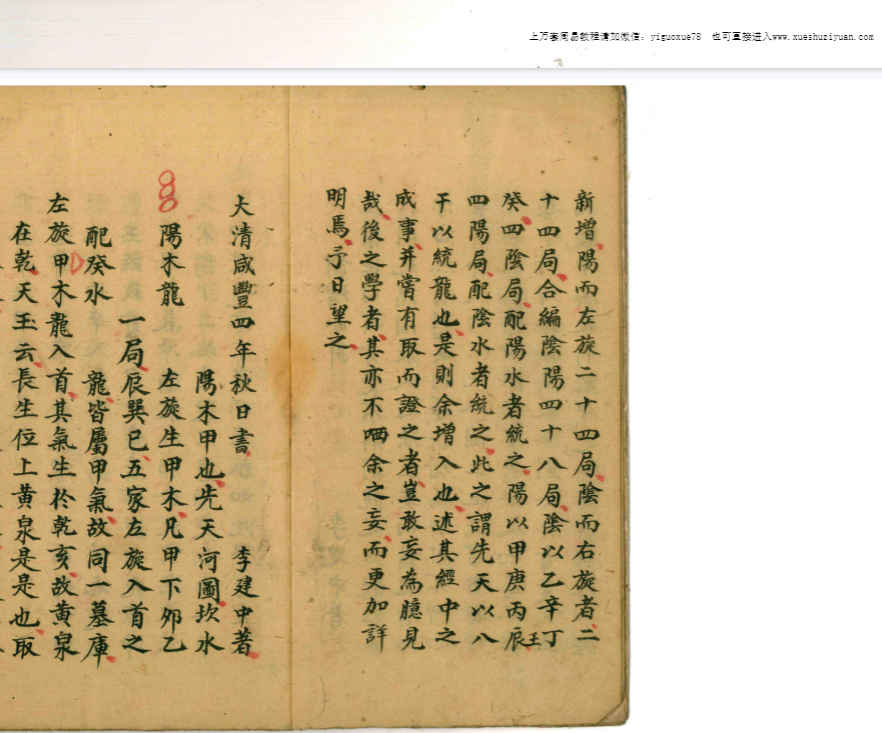 上万套周易教程请加微信：yiguoxue78 也可直接进入www.xueshuziyuan.com
新增陽而左旋二十四局陰而右旋者二
十四局合編陰陽四十八局陰以乙辛丁
癸四陰局配陽水者統之陽以甲庚丙辰壬
四陽局配陰水者統之此之謂先天以八
干以統龍也是則余增入也述其經中之
成事并嘗有取而證之者豈敢妄為臆見
哉後之學者其亦不哂余之妄而更加詳
明焉予日望之
大清咸豐四年秋日書 李建中著
陽木甲也先天河圖坎水
陽木龍 左旋生甲木凡甲下夘乙
一局辰巽巳五家左旋入首之
配癸水 龍皆屬甲氣故同一墓庫
左旋甲木龍入首其氣生於乾亥故黄泉
在乾天玉云長生位上黄泉是是也取